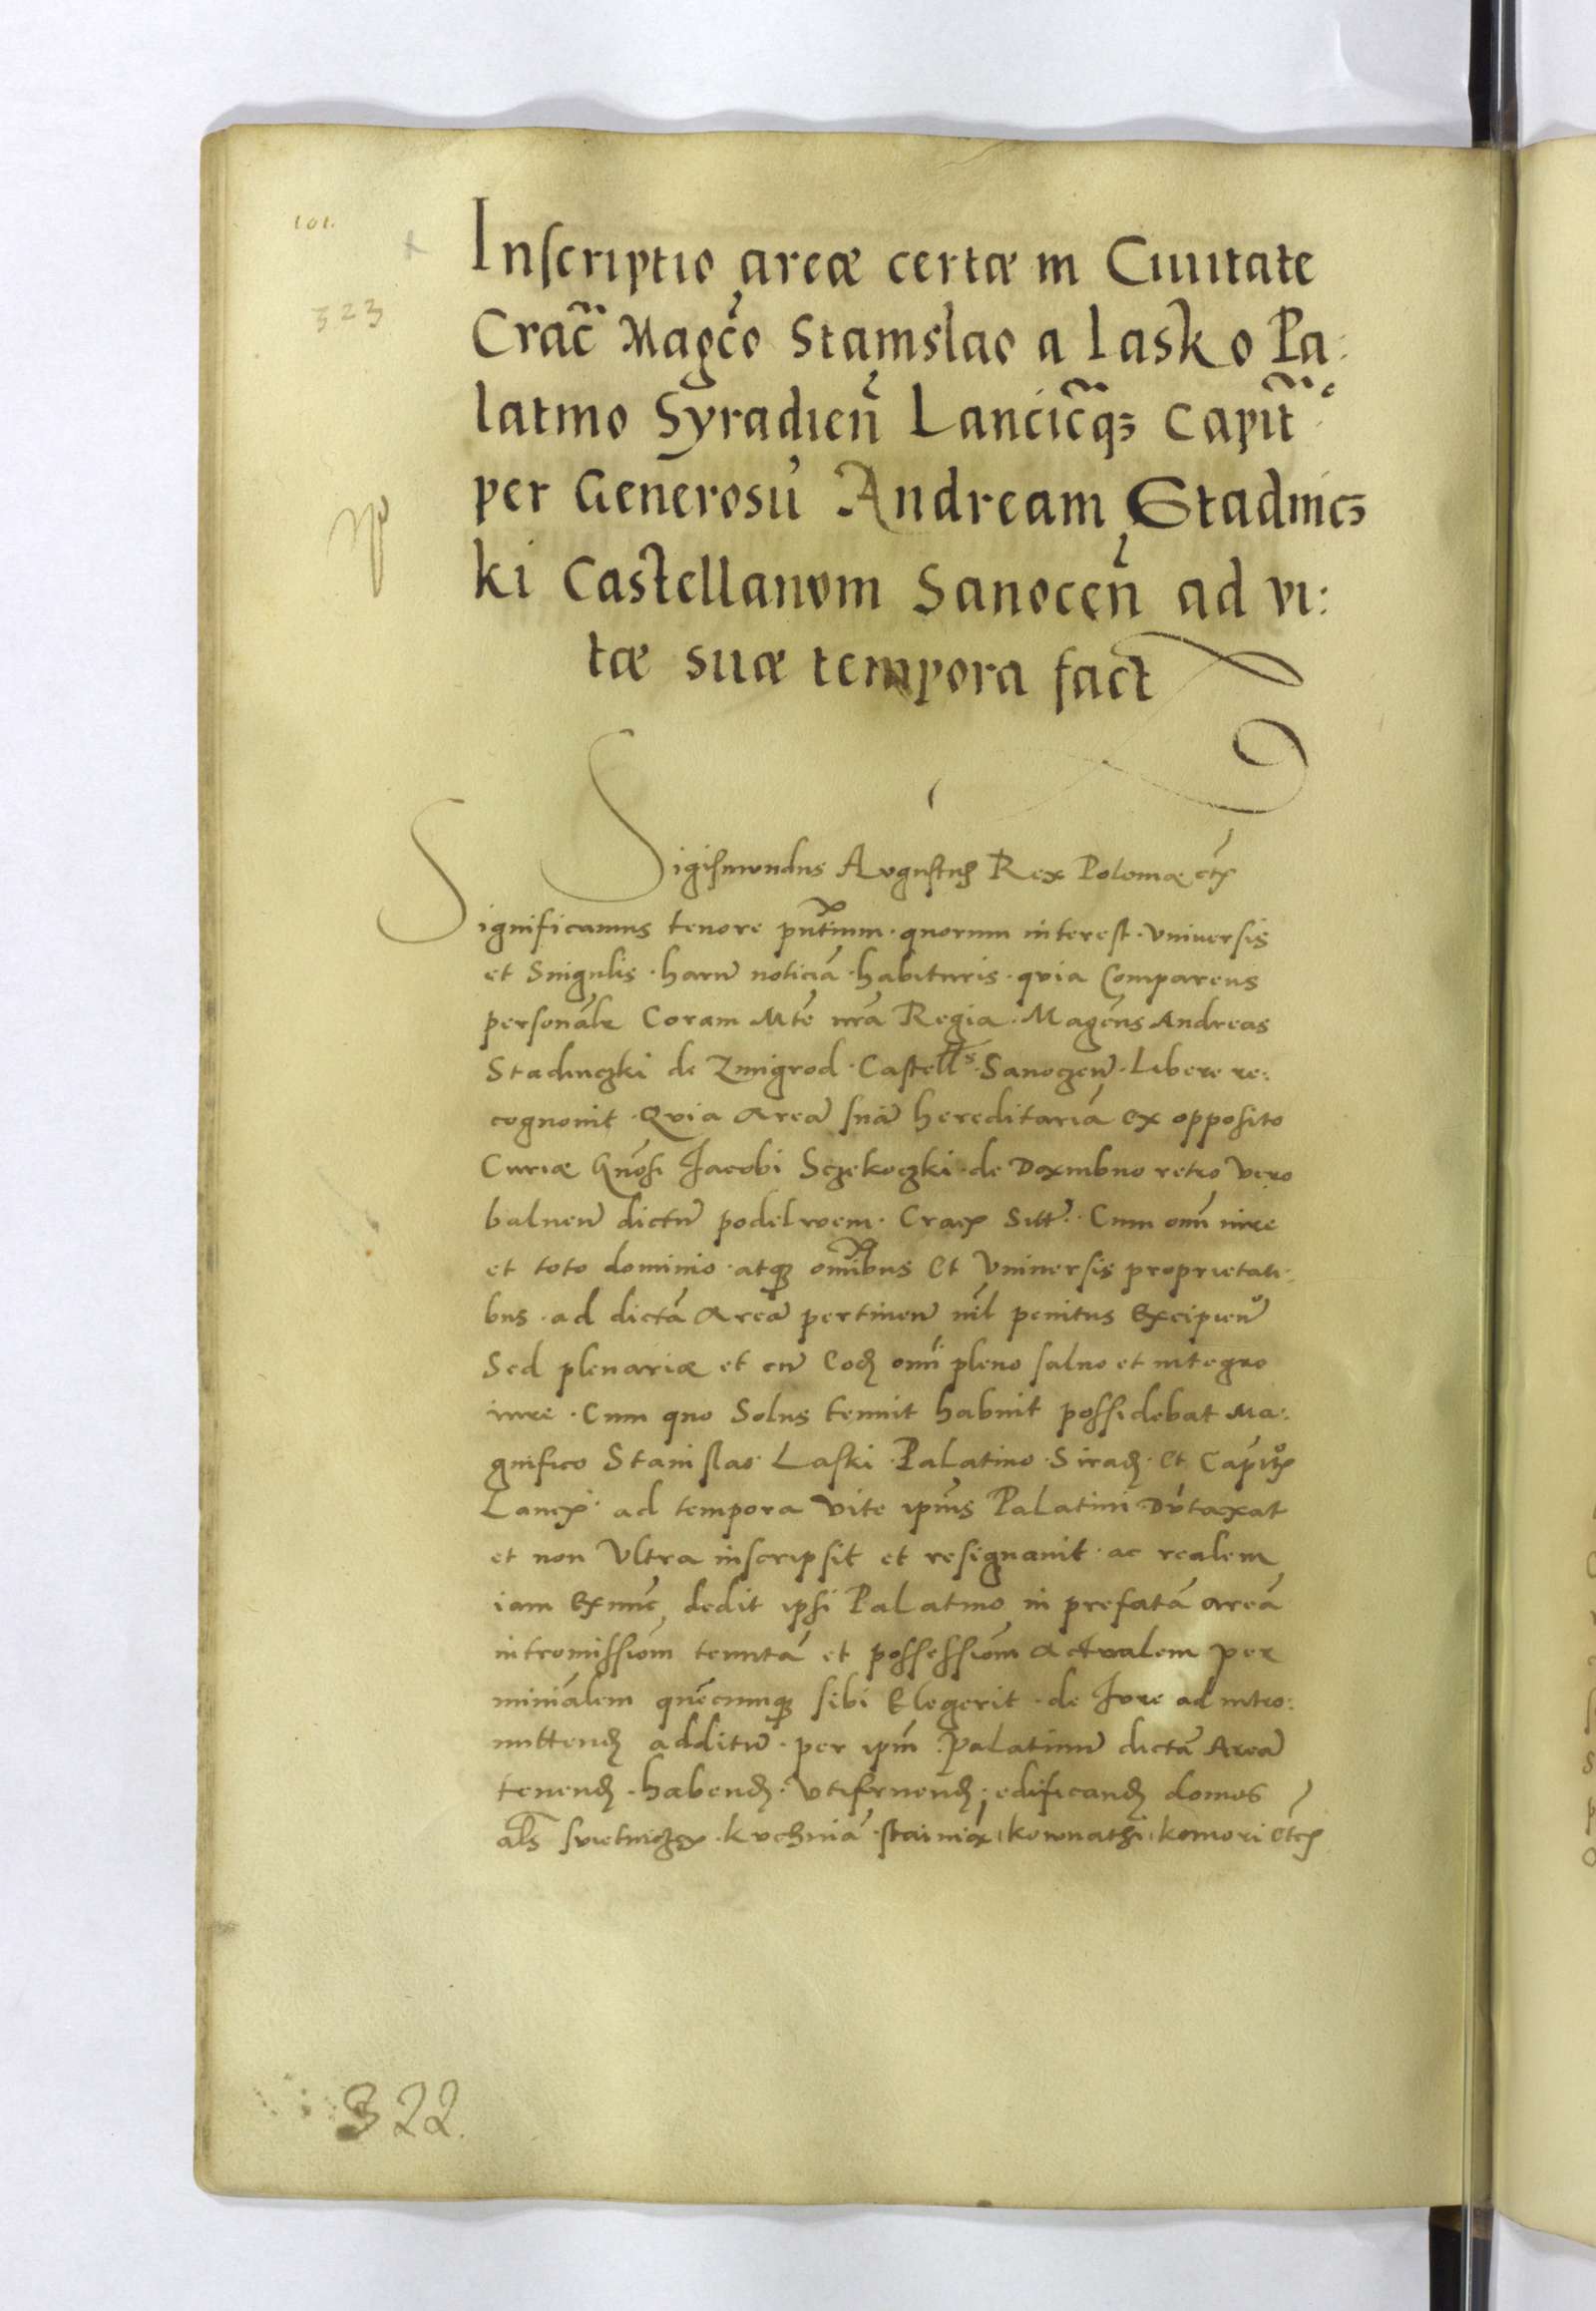 101.
323
Inscriptio areæ certæ in Ciuitate
Crac̃ Magc̃o Stanislao a Lasko Pa:
latino Syradien̄ Lancic̃q₃ Capit̃
per Generosū Andream Stadnic₃
ki Castellanvm Sanocen̄ ad vi:
tæ suæ tempora fact
Sigismundus Avgustus Rex Poloniæ etc̃
Significamus tenore pn̄tium · quorum interest · Vniuersis
et Singulis · harū noticiā · habituris · qvia Comparens
personālr Coram Mt̄e nr̄a Regia · Magc̄us Andreas
Stadniczki de Zmigrod · Castell̄s · Sanoczen̄ · Libere re:
cognouit · Qvia Areā suā hereditariā ex opposito
Curiæ Gn̄osi Jacobi Sczekoczki · de retro vero
balneū dictū podelwem · Crac̃ Sitt̄ · Cum om̄i iure
et toto dominio · atq₃ om̄ibus Et Vniuersis proprietati:
bus · ad dictā Areā pertinen̄ nīl penitus Excipien̄
Sed plenariæ et cū Eod̄ om̄i pleno saluo et integro
iure · Cum quo Solus tenuit habuit possidebat Ma:
gnifico Stanislao Laski · Palatino · Sirad̄ · Et Capit̄
Lanc̃ · ad tempora Vite ip̄ius Palatini Dūtaxat
et non Vltra inscripsit et resignauit · ac realem
iam Exnunc dedit ipsi Palatino in prefatā areā
intromissiōm tenutā et possessiōm Actualem per
miniālem quēcumq₃ sibi Elegerit · de Jvre ad intro:
mittend̄ additū · per ip̄m Palatinū dictā Areā
tenend̄ · habend̄ · vtifruend̄ · edificand̄ domos
al̄s svietnicze · kvchniā · stainiā · kownathi · komori Etc̃
322.